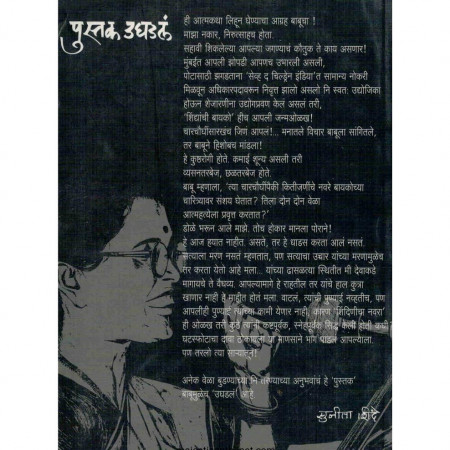 पुस्तक उघडलं
ही आत्मकथा लिहून घेण्याचा आग्रह बाबूचा !
माझा नकार, निरुत्साहच होता.
सहावी शिकलेल्या आपल्या जगण्याचं कौतुक ते काय असणार!
मुंबईत आपली झोपडी आपणच उभारली असली,
पोटासाठी झगडताना 'सेव्ह द चिल्ड्रेन इंडिया'त सामान्य नोकरी
मिळवून अधिकारपदावरून निवृत्त झालो असलो नि स्वत: उद्योजिका
होऊन शेजारणीना उद्योगप्रवण केलं असलं तरी,
'शिंद्यांची बायको' हीच आपली जन्मओळख!
चारचौघींसारखंच जिणं आपलं!... मनातले विचार बाबूला सांगितले,
तर बाबूने हिशोबच मांडला!
हे कुष्ठरोगी होते. कमाई शून्य असली तरी
व्यसनतरबेज, छळतरबेज होते.
बाबू म्हणाला, 'त्या चारचौघींपैकी कितीजणींचे नवरे बायकोच्या
चारित्र्यावर संशय घेतात ? तिला दोन दोन वेळा
आत्महत्येला प्रवृत्त करतात ?'
डोळे भरून आले माझे. तोच होकार मानला पोराने!
हे आज हयात नाहीत. असते, तर हे धाडस करता आलं नसतं.
सत्याला मरण नसतं म्हणतात, पण सत्याचा उच्चार यांच्या मरणामुळेच
तर करता येतो आहे मला... यांच्या ढासळत्या स्थितीत मी देवाकडे
मागायचे ते वैधव्य. आपल्यामागे हे राहतील तर यांचे हाल कुत्रा
खाणार नाही हे माहीत होतं मला. वाटलं, त्यांची पुण्याई नव्हतीच, पण
आपलीही पुण्याई त्यांच्या कामी येणार नाही, कारण 'शिंदिणीचा नवरा'
ही ओळख तरी कुठे त्यांनी कष्टपूर्वक, स्नेहपूर्वक सिद्ध केली होती कधी
घटस्फोटाचा दावा ठोकायला या माणसाने भाग पाडलं आपल्याला.
पण तरलो त्या साऱ्यातून!
अनेक वेळा बुडण्याच्या नि तरण्याच्या अनुभवांचं हे 'पुस्तक'
बाबूमुळेच 'उघडलं' आहे.
सुनीता शिंदे